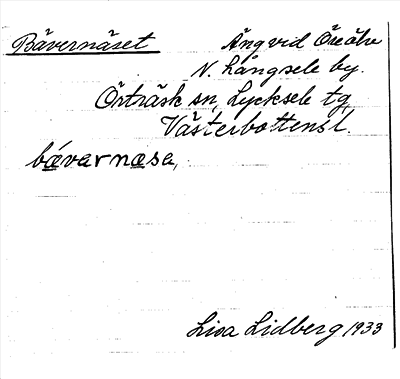 Bävernäset Äng vid Öreälv
N. Långsele by.
Örträsk sn, Lycksele tg,
Västerbottensl.
bǽvarnæsa,
Lisa Lidberg 1933